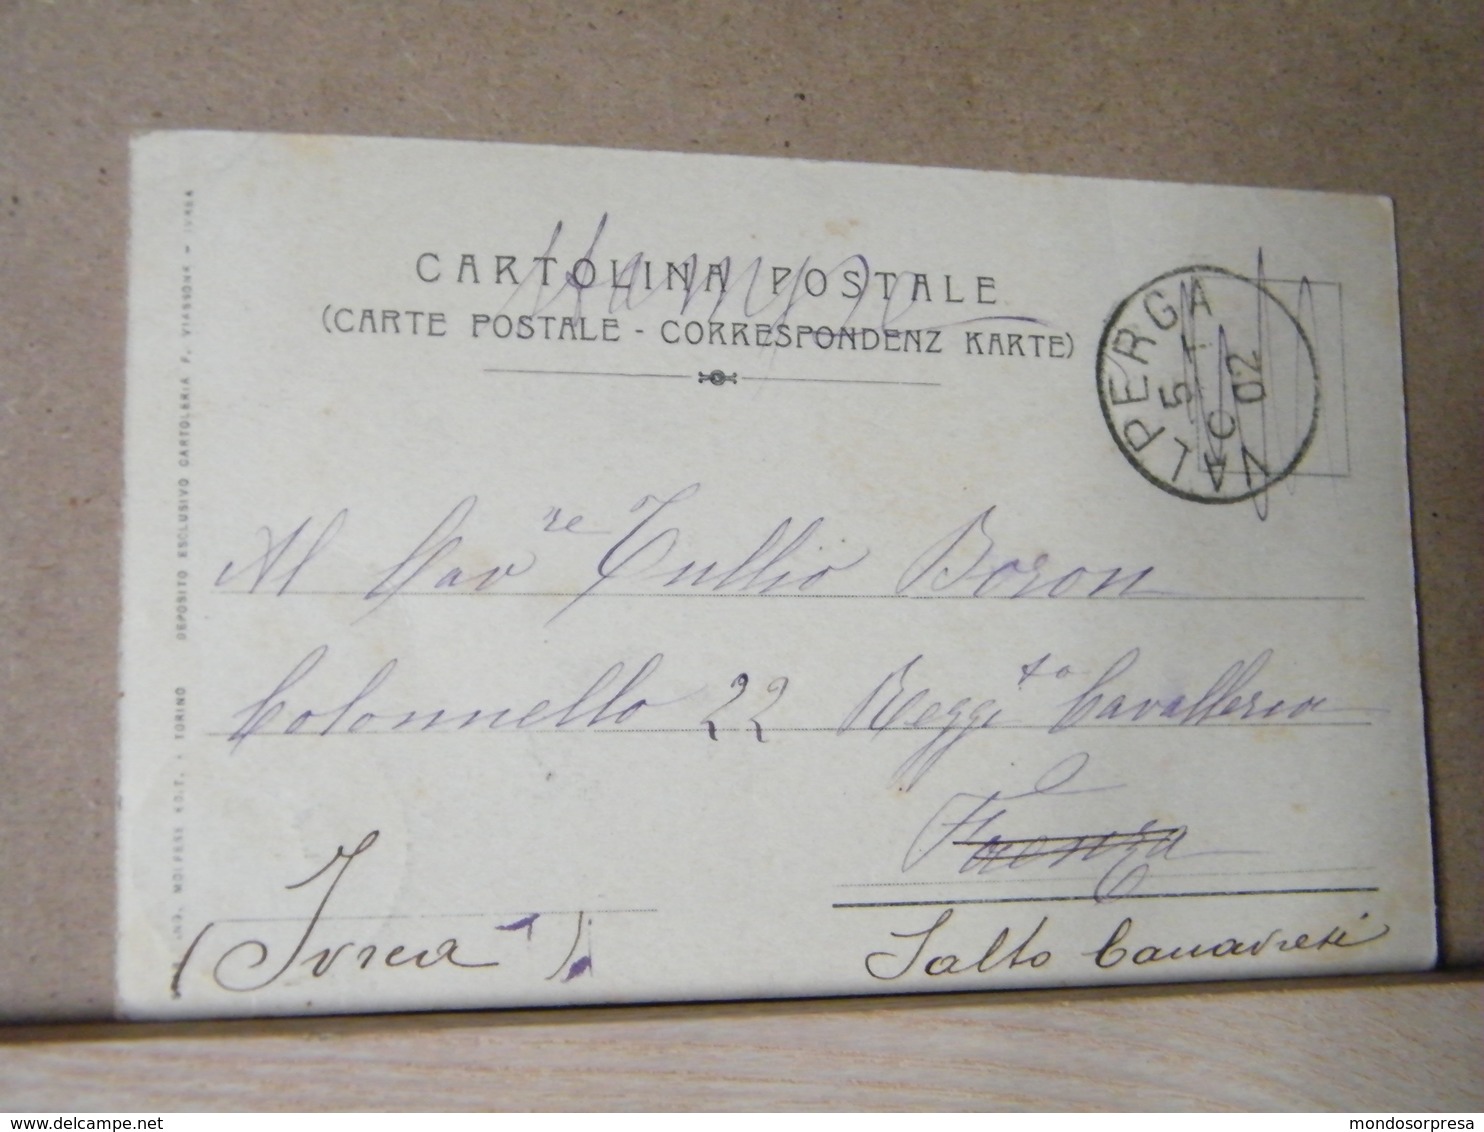 CARTOLINA POSTALE
(CARTE POSTALE - CORRESPONDENZ KARTE)
VALPERGA
5
C
02
Al Cav.re Tullio Boron
Colonnello 22 Reggito Cavalleria
Faenza
(Ivrea)
Salto Canavese
IND. MOLFESE EDIT. - TORINO DEPOSITO ESCLUSIVO CARTOLERIA F. VIASSONE - IVREA
delcampe.net
mondosorpresa